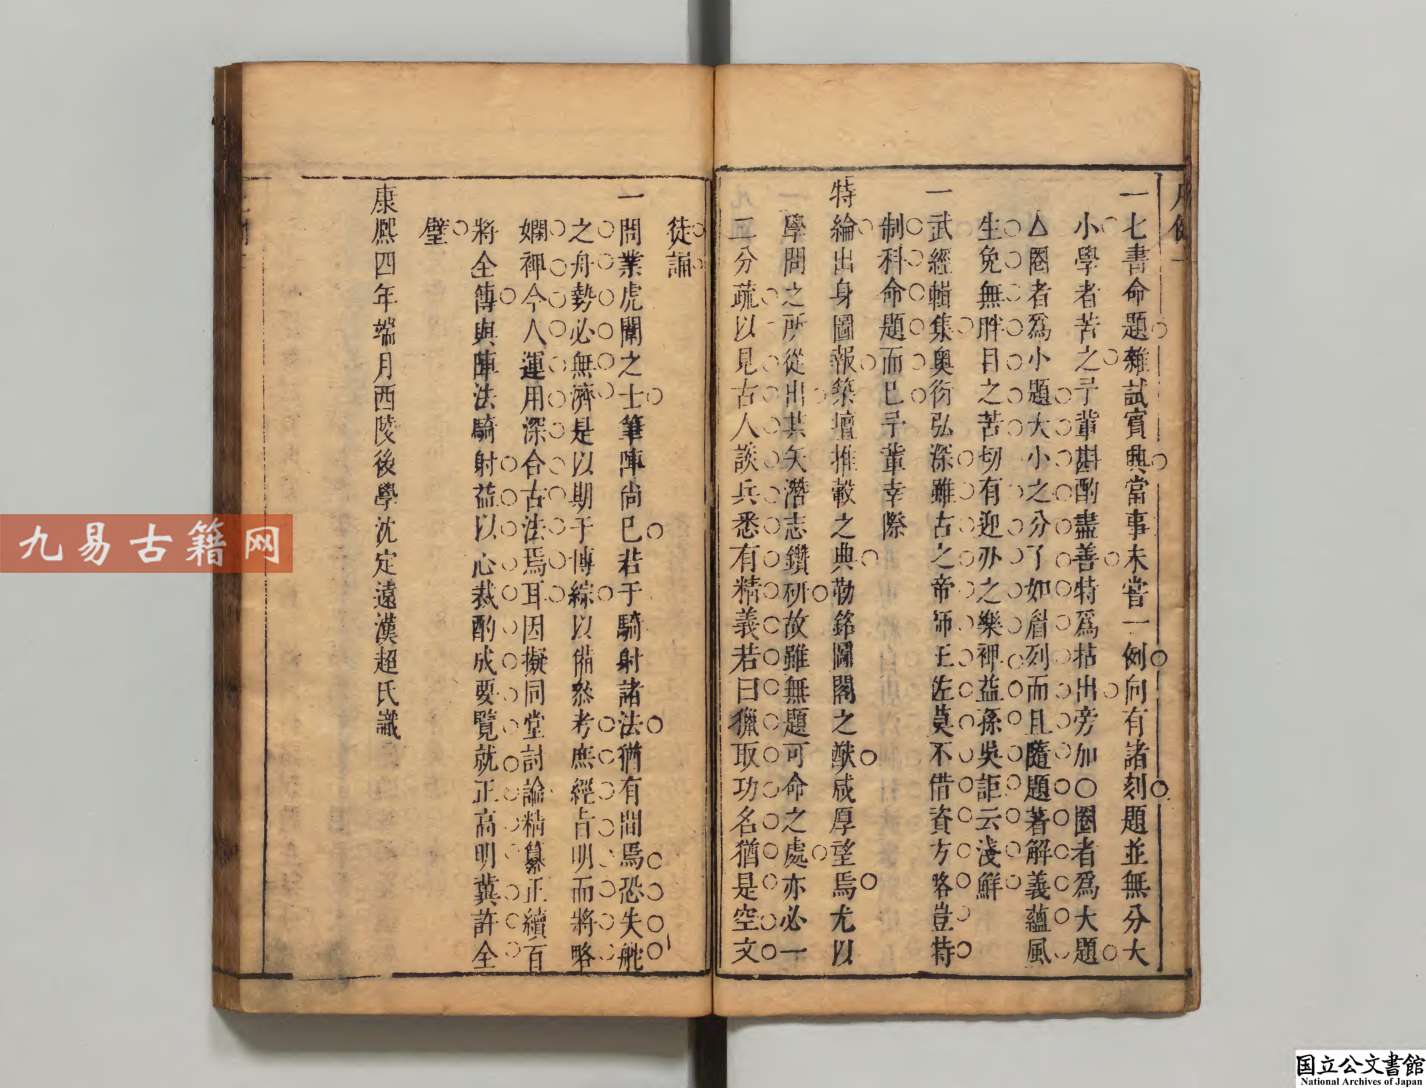 一七書命題雜試賓興當事未嘗一例向有諸刻題並無分大
小學者苦之予輩斟酌盡善特爲拈出旁加○圈者爲大題
△圈者爲小題大小之分了如眉列而且隨題著解義蘊風
生免無胖目之苦切有迎刃之樂裨益孫吳詎云淺鮮
一武經輯集奧衍弘深雖古之帝師王佐莫不借資方略豈特
制科命題而已予輩幸際
特綸出身圖報築壇推轂之典勒銘圖閣之猷咸厚望焉尤以
學問之所從出某矢潛志鑽研故雖無題可命之處亦必一
二分疏以見古人談兵悉有精義若曰獵取功名猶是空文
徒誦
一問業虎闈之士筆陣尚已若于騎射諸法猶有間焉恐失舵
之舟勢必無濟是以期于博綜以備叅考庶經旨明而將略
嫻裨今人運用深合古法焉耳因擬同堂討論精纂正續百
將全傳與陣法騎射益以心裁酌成要覽就正高明冀許全
璧
康熙四年端月西陵後學沈定遠漢超氏識
九易古籍网
国立公文書館
National Archives of Japan